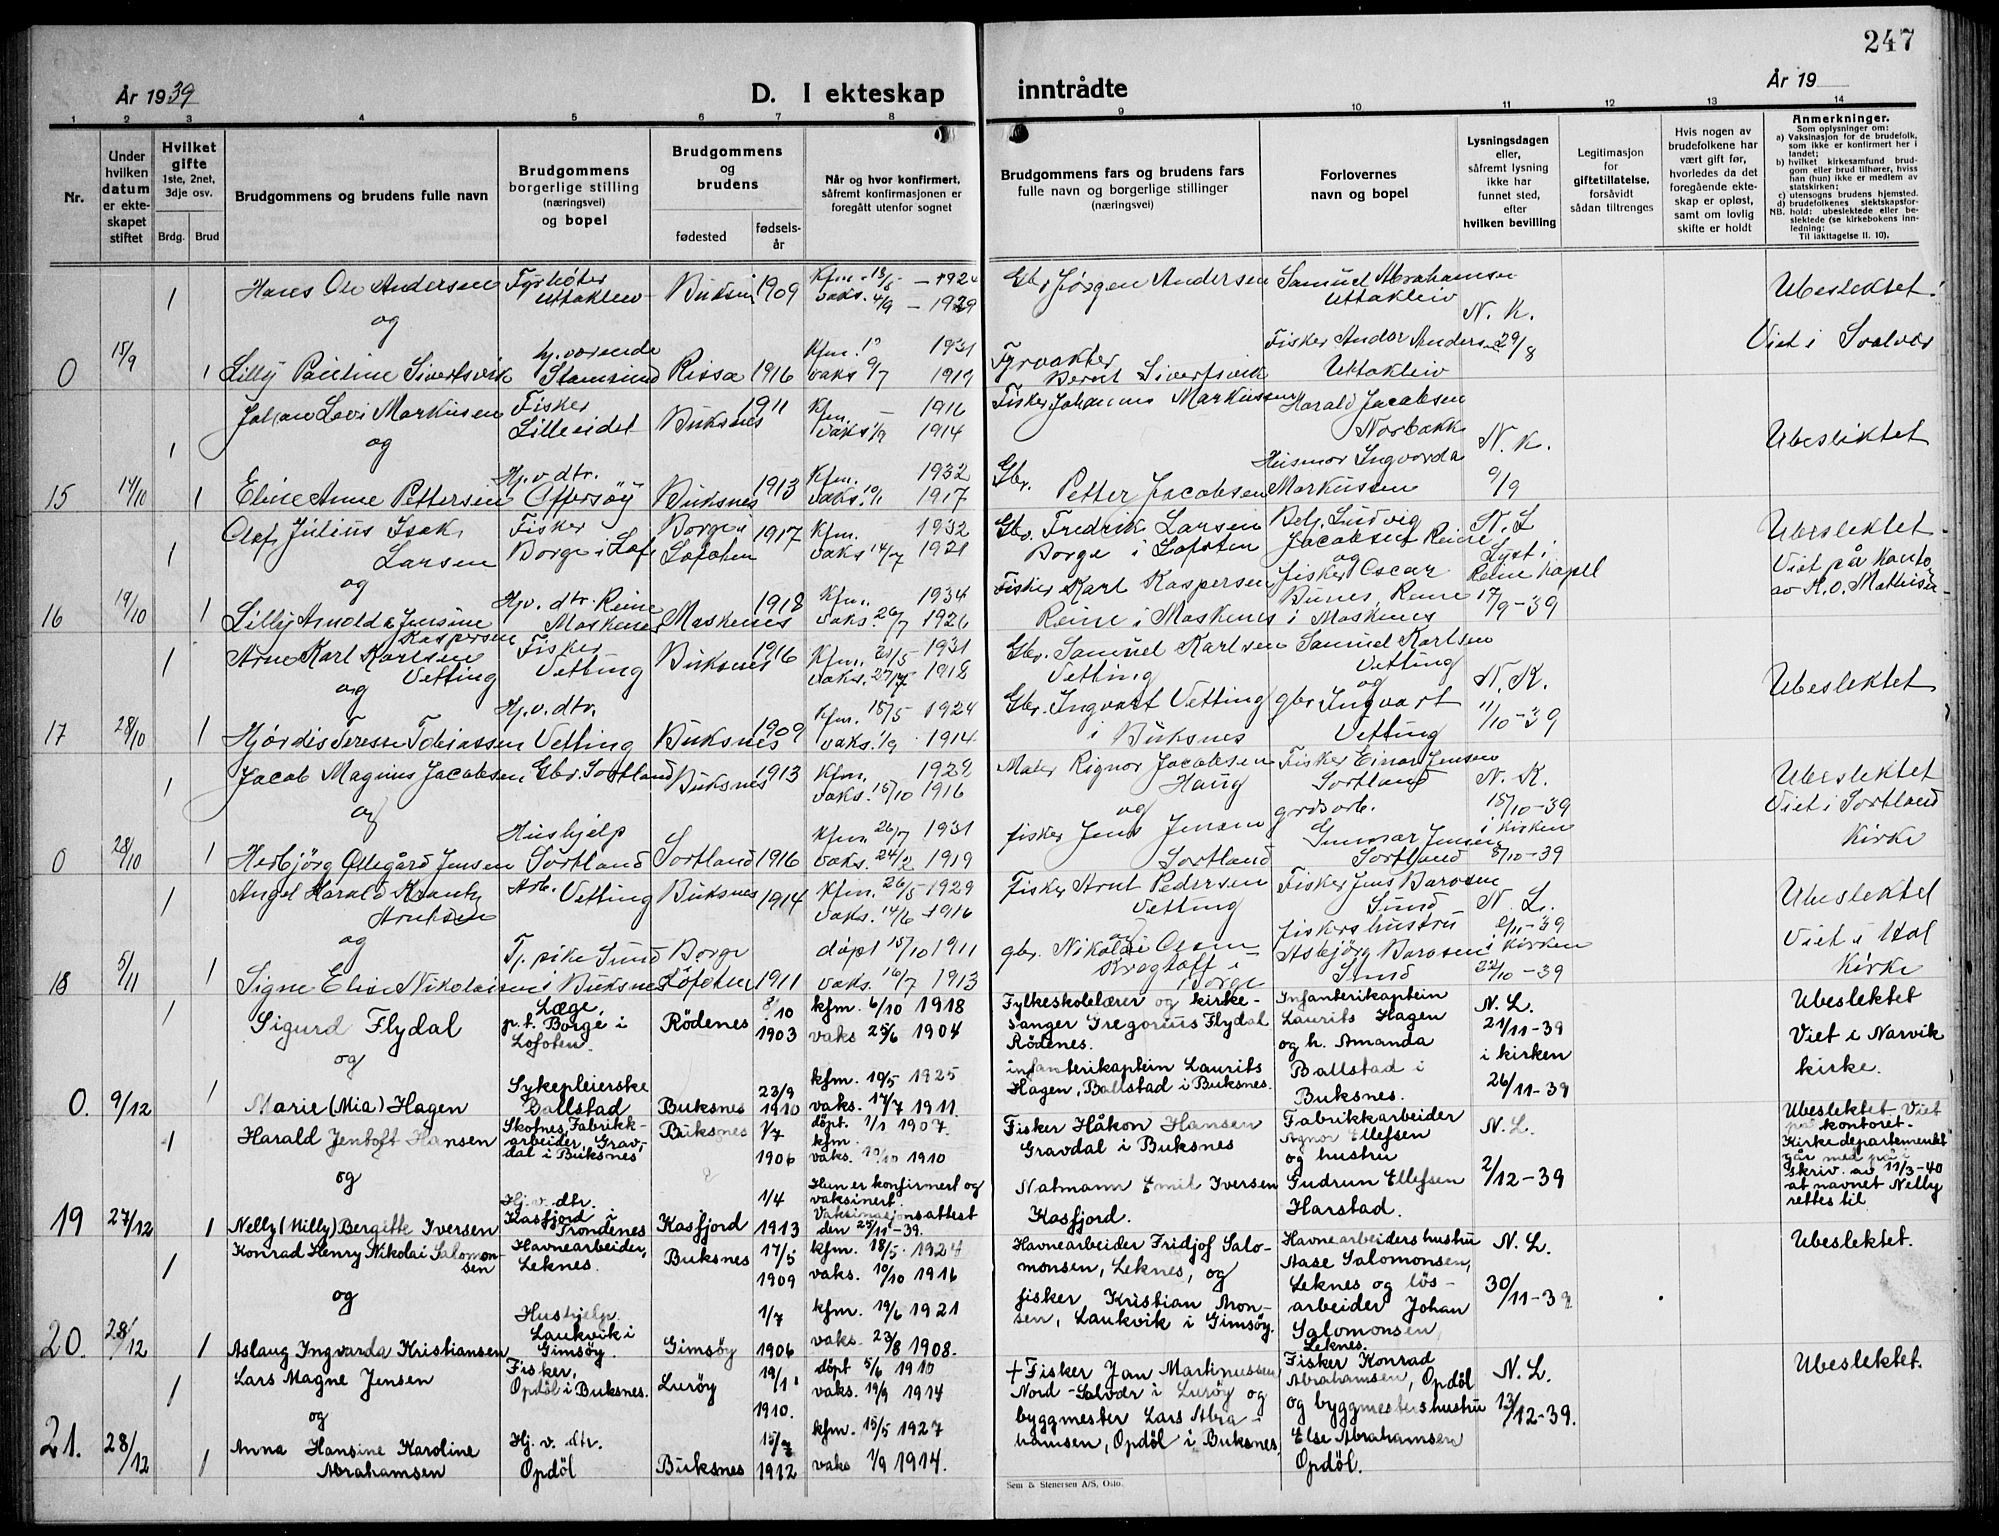 247
År 1939
D. I ekteskap
inntrådte
År 19
1 2 3 4 5 6 7 8 9 10 11 12 13 14
Nr.
Under hvilken datum er ekteskapet stiftet
Hvilket gifte
1ste, 2net, 3dje osv.
Brdg. Brud
Brudgommens og brudens fulle navn
Brudgommens borgerlige stilling (næringsvei) og bopel
Brudgommens og brudens
fødested
fødselsår
Når og hvor konfirmert, såfremt konfirmasjonen er foregått utenfor sognet
Brudgommens fars og brudens fars
fulle navn og borgerlige stillinger
(næringsvei)
Forlovernes
navn og bopel
Lysningsdagen
eller,
såfremt lysning
ikke har
funnet sted,
efter
hvilken bevilling
Legitimasjon
for
giftetillatelse,
forsåvidt
sådan tiltrenges
Hvis nogen av
brudefolkene har
vært gift før,
hvorledes da det
foregående ekte-
skap er opløst,
samt om lovlig
skifte er holdt
Anmerkninger.
Som oplysninger om:
a) Vaksinasjon for de brudefolk,
som ikke er konfirmert her i
landet;
b) hvilket kirkesamfund brud-
gom eller brud tilhører, hviss
han (hun) ikke er medlem av
statskirken;
c) utensogns brudens hjemsted.
d) brudefolkenes slektskapsfor-
NB. hold: ubeslektede eller be-
slektede (se kirkebokens inn-
ledning:
Til iakttagelse II. 10).
0
15/9
1
Hans Ole Andersen
og
Uttakleiv
1909
Kfm. 1924
vaks. 4/9 1929
Gbr. Jørgen Andersen
Samuel Abrahamsen
Uttakleiv
N. K.
29/8
Ubeslektet
1
Lilly Pauline Sivertsvik
Stamsund
Rissa
1916
Kfm. 1931
vaks 9/7 1919
Fyrvokter
Bernt Sivertsvik
Fisker Andor Andersen
Uttakleiv
Viet i Svolvær
15
14/10
1
Johan Levi Markusen
og
Fisker
Lilleeidet
Buksnes
1911
Kfm. 1916
vaks 1/9 1914
Fisker Johannes Markussen
Harald Jacobsen
Norbakk
N. K.
9/9
Ubesliktet
1
Eline Anne Pettersen
Hj. v. dtr.
Offersøy
Buksnes
1913
Kfm. 1932
vaks. 10/1 1917
Gbr. Petter Jacobsen
Husmor Ingvarda
Markussen
16
19/10
1
Olaf Julius Isak
Larsen
og
Fisker
Borge i Lof
Borge i
Lofoten
1917
Kfm. 1932
vaks 14/7 1921
Gbr. Fredrik Larsen
Borge i Lofoten
Ludvig
Jacobsen Reine
og
N. L
Lyst i
Reine kapel
17/9-39
Ubeslektet
Viet på kontor
av K. O. Mathisen
1
Lilly Arnolda Jensine
Kaspersen
Hj. v. dtr. Reine
Moskenes
Moskenes
1918
Kfm. 1934
vaks. 26/7 1926
Fisker Karl Kaspersen
Reine i Moskenes
fisker Oscar
Bunes, Reine
i Moskenes
17
28/10
1
Arne Karl Karlsen
Vetting
og
Fisker
Vetting
Buksnes
1916
Kfm. 21/5 1931
vaks. 27/7 1918
Gbr. Samuel Karlsen
Vetting
Samuel Karlsen
Vetting
og
N. K.
11/10-39
Ubeslektet
1
Hjørdis Terese Tobiassen
Hj. v. dtr.
Vetting
Buksnes
1909
Kfm. 15/5 1924
vaks. 1/9 1914
Gbr. Ingvart Vetting
i Buksnes
gbr Ingvart
Vetting
0
28/10
1
Jacob Magnus Jacobsen
og
Gbr. Sortland
Buksnes
1913
Kfm. 1929
vaks. 15/10 1916
Maler Rignor Jacobsen
Haug
og
Fisker Einar Jensen
Sortland
grdsarb.
N. K.
15/10-39
i kirken
8/10-39
Ubeslektet
Viet i Sortland
Kirke
1
Herbjørg Ottegård Jensen
Hushjelp
Sortland
Sortland
1916
Kfm. 26/7 1931
vaks. 24/2 1919
fisker Jens Jensen
Sortland
Gunnar Jensen
Sortland
18
5/11
1
Angel Harald Krantz
Arntsen
og
Arb.
Vetting
Buksnes
1914
Kfm. 26/5 1929
vaks. 14/6 1916
Fisker Arnt Pedersen
Vetting
og
Fisker Jens Barosen
Sund
N. L.
9/11-39
i Kirken
22/10-39
Ubeslektet
Viet i Hol
Kirke
1
Signe Elise Nikolaisen
Tj. pike Sund
i Buksnes
Borge
Lofoten
1911
døpt 15/10 1911
vaks. 16/7 1913
gbr. Nikolai Olsen
i Borge
fiskers hustru
Asbjørg Barosen
Sund
0.
9/12
1
Sigurd Flydal
og
Læge,
p. t. Borge i
Lofoten.
Rödenes
8/10
1903
kfm. 6/10 1918
vaks 25/6 1904
Fylkesskolelærer og kirke-
sanger Gregorius Flydal
Rödenes.
Infanterikaptein
Laurits Hagen
og h. Amanda
Ballstad i
Buksnes.
N. L.
21/11-39
i kirken
26/11-39
Ubeslektet
Viet i Narvik
kirke.
1
Marie (Mia) Hagen
Sykepleierske
Ballstad
Buksnes
23/9
1910
kfm. 10/5 1925
vaks. 17/7 1911.
infanterikaptein Laurits
Hagen, Ballstad i Buksnes.
19
27/12
1
Harald Jentoft Hansen
og
Skofnes, Fabrikk-
arbeider, Grav-
dal i Buksnes
Buksnes
1/7
1906
döpt. 1/1 1907.
kfm.
vaks. 10/10 1910
Fisker Håkon Hansen
Gravdal i Buksnes
Fabrikkarbeider
Agnor Ellefsen
og hustru
Gudrun Ellefsen
Harstad.
N. L.
2/12-39
Ubeslektet. Viet
på kontoret.
Kirkedepartementet
går med på i
skriv. av 11/3-40
at navnet Nelly
rettes til
1
Nelly (Milly) Bergitte Iversen
Hj. v. dtr.
Kasfjord i
Trondenes
Kasfjord
1/4
1913
Hun er konfirmert og
vaksinert
Vaksinasjonsattest
den 25/11-39.
Natmann Emil Iversen
Kasfjord.
20.
28/12
1
Konrad Henry Nikolai Salomon-
sen
og
Havnearbeider,
Leknes.
Buksnes
17/5
1909
kfm. 18/5. 1924
vaks. 10/10 1916
Havnearbeider Fridjof Salo-
monsen, Leknes, og
fisker Kristian Mon-
sen, Laukvik i Gimsöy.
Havnearbeiders hustru
Aase Salomonsen,
Leknes og lös-
arbeider Johan
Salomonsen,
Leknes.
N. L.
30/11-39
Ubeslektet.
1
Aslaug Ingvarda Kristiansen
Hushjelp.
Laukvik i
Gimsöy.
Gimsöy
1/7
1906
kfm. 19/6 1921
vaks. 23/8 1908.
21.
28/12
1
Lars Magne Jensen
og
Fisker,
Opdöl i Buksnes.
Luröy
19/1
1910.
döpt 5/6 1910
vaks. 19/9 1914
+ Fisker Jan Martinussen
Nord-Solvær i Luröy og
byggmester Lars Abra-
hamsen, Opdöl i Buksnes.
Fisker Konrad
Abrahamsen, Opdöl
og byggmesters hustru
Else Abrahamsen
Opdöl.
N. L.
13/12-39.
Ubeslektet.
1
Anna Hansine Karoline
Abrahamsen
Hj. v. dtr.
Opdöl
Buksnes
15/7
1912
kfm. 15/5 1927
vaks 1/9 1914.
Sem & Stenersen A/S, Oslo.